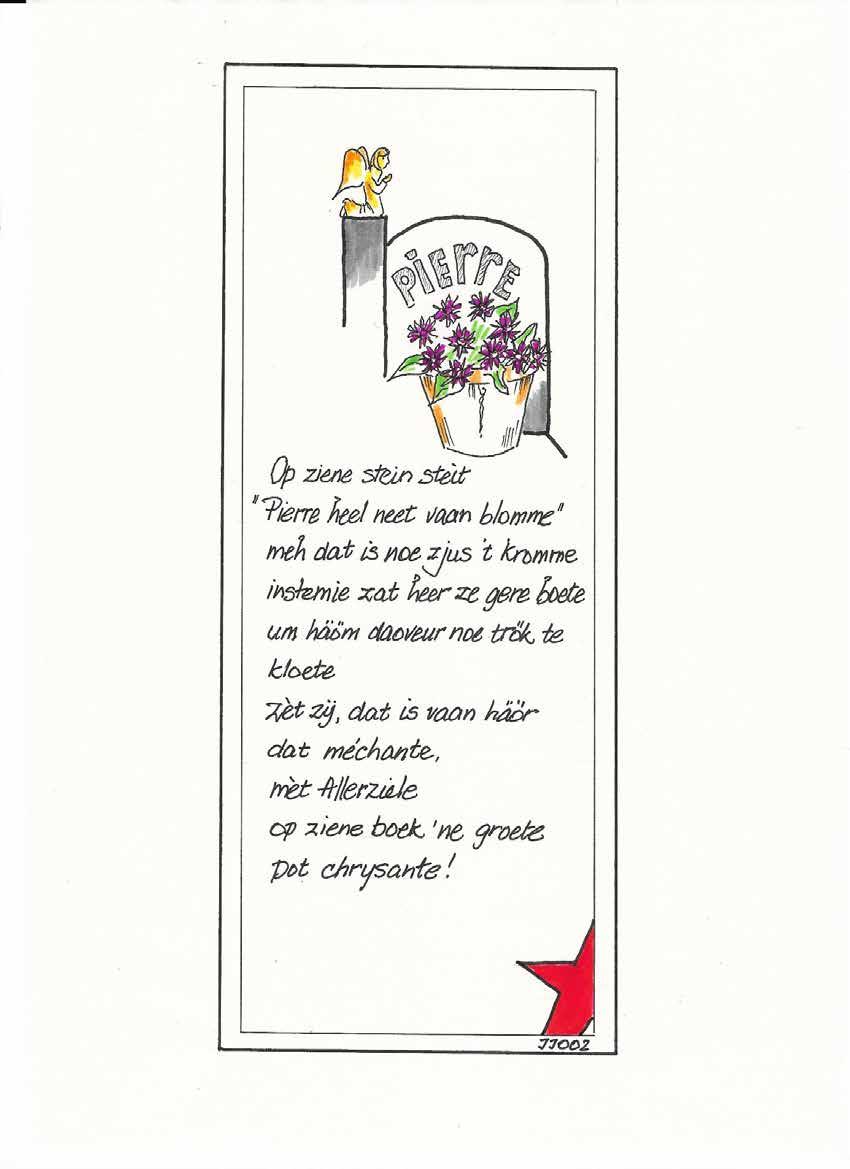 PiERRE
Op ziene stein stèit
"Pierre heel neet vaan blomme"
meh dat is noe zjus 't kromme
instemie zat heer ze gere boete
um hääm daoveur noe trök te
kloete
zèt zij, dat is vaan häör
dat méchante,
mèt Allerziele
op ziene boek 'ne groete
pot chrysante!
JJ002